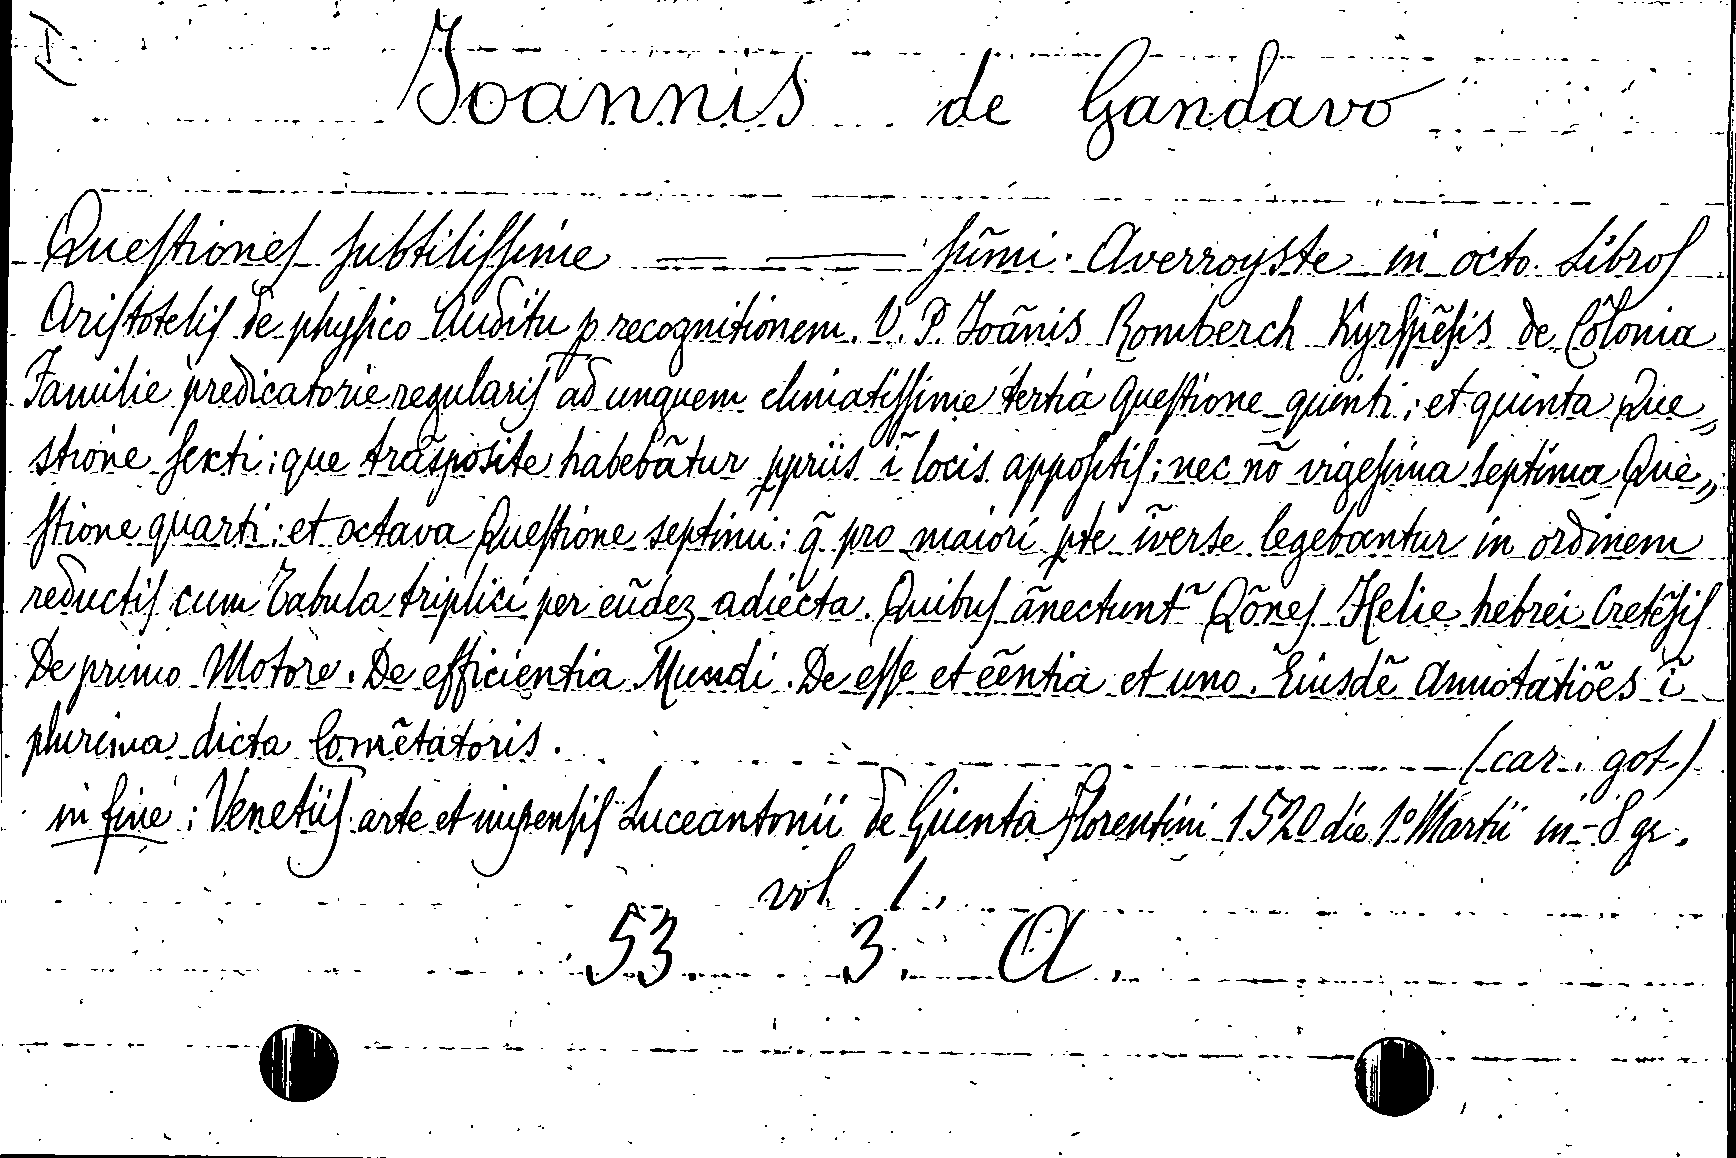 I)
Joannis de Gandavo
Queſtioneſ ſubtiliſſime —— —— ſūmi. Averroyste in octo Libroſ
Ariſtoteliſ de phyſico Auditu p recognitionem. V. P. Joānis Romberch Kyrſpēſis de Colonia
Familie predicatorie regulariſ ad unguem elimatiſſime tertia Queſtione quinti; et quinta Que„
stione ſexti: que trāsposite habebātur ppriis ī locis appoſitiſ; nec nō vigeſima septima Que„
ſtione quarti: et octava Queſtione septimi: q̃ pro maiori pte īverse legebantur in ordinem
reductiſ cum Tabula triplici per eūdez adiecta. Quibuſ ānectunt~ Qōneſ Helie hebrei Cretēſiſ
De primo Motore. De efficientia Mundi. De eſſe et eēntia et uno. Eiusdē Annotatiōes ī
plurima dicta Comētatoris. (car. got.)
in fine: Venetiiſ arte et impenſiſ Luceantonii de Giunta Florentini 1520 die 1º Martii in-8 gr.
vol 1.
53 3. A.